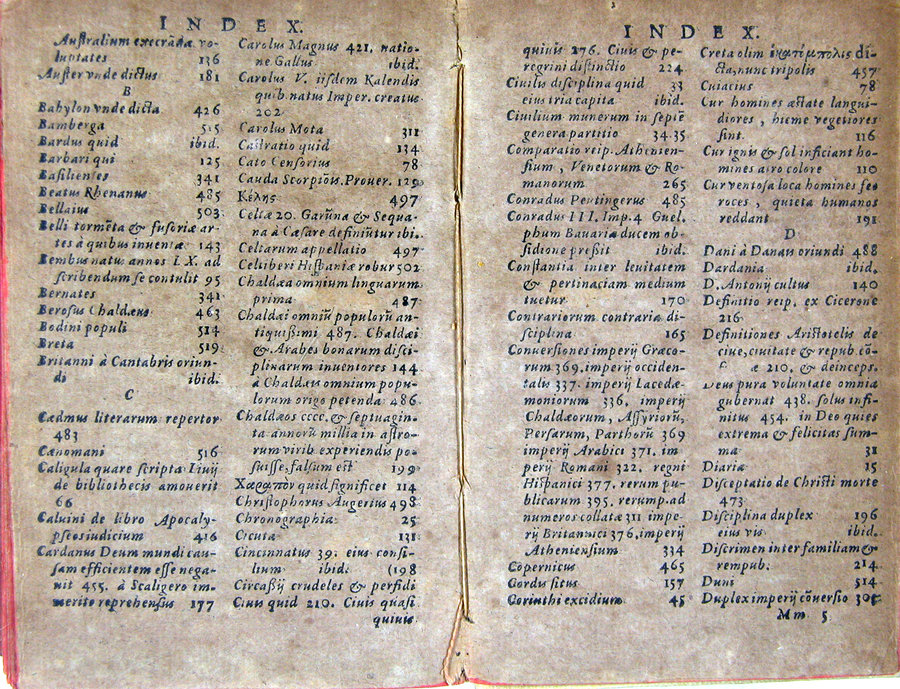 INDEX.
Auſtralium execrãda vo-
luptates 136
Auſter vnde dictus 181
B
Babylon vnde dicta 426
Bamberga 515
Bardus quid ibid.
Barbari qui 125
Baſilienſes 341
Beatus Rhenanus 485
Bellaius 503
Belli tormẽta & fuſoriæ ar-
tes à quibus inuentæ 143
Bembus natus annos LX. ad
ſcribendum ſe contulit 95
Bernates 341
Beroſus Chaldæus 463
Bodini populi 514
Breta 519
Britanni à Cantabris oriun-
di ibid.
C
Cædmus literarum repertor
483
Cænomani 516
Caligula quare ſcripta Liuij
de bibliothecis amouerit
66
Caluini de libro Apocaly-
pſeos iudicium 416
Cardanus Deum mundi cau-
ſam efficientem eſſe nega-
uit 455. à Scaligero im-
merito reprehenſus 177
Carolus Magnus 421. natio-
ne Gallus ibid.
Carolus V. iiſdem Kalendis
quib. natus Imper. creatus
202
Carolus Mota 311
Caſtratio quid 134
Cato Cenſorius 78
Cauda Scorpiõis. Prouer. 129
Κέλης 497
Celtæ 20. Garũna & Sequa-
na à Cæſare definiũtur ibi.
Celtarum appellatio 497
Celtiberi Hiſpaniæ robur 502
Chaldæa omnium linguarum
prima 487
Chaldæi omniũ populorũ an-
tiquiſſimi 487. Chaldæi
& Arabes bonarum diſci-
plinarum inuentores 144
à Chaldæis omnium popu-
lorum origo petenda 486
Chaldæos cccc. & ſeptuagin-
ta annorũ millia in aſtro-
rum virib. experiendis po-
ſuiſſe, falſum eſt 199
quid ſignificet 114
Chriſtophorus Augerius 498
Chronographia 25
Cicuta 131
Cincinnatus 39. eius conſi-
lium ibid. (198
Circaſſij crudeles & perfidi
Ciuis quid 210. Ciuis quaſi
quiuis
INDEX.
quiuis 276. Ciuis & pe-
regrini diſtinctio 224
Ciuilis diſciplina quid 33
eius tria capita ibid.
Ciuilium munerum in ſeptẽ
genera partitio 34.35
Comparatio reip. Athenien-
ſium, Venetorum & Ro-
manorum 265
Conradus Peutingerus 485
Conradus III. Imp. 4 Guel-
phum Bauariæ ducem ob-
ſidione preßit ibid.
Conſtantia inter leuitatem
& pertinaciam medium
tuetur 170
Contrariorum contraria di-
ſciplina 165
Conuerſiones imperij Græco-
rum 369. imperij occiden-
talis 337. imperij Lacedæ-
moniorum 336. imperij
Chaldæorum, Aſſyriorũ,
Perſarum, Parthorũ 369
imperij Arabici 371. im-
perij Romani 322. regni
Hiſpanici 377. rerum pu-
blicarum 395. rerump. ad
numeros collatæ 311 impe-
rij Britanici 376. imperij
Athenienſium 334
Copernicus 465
Cordis ſitus 157
Corinthi excidium 45
Creta olim di-
cta, nunc tripolis 457
Cuiacius 78
Cur homines æſtate langui-
diores, hieme vegetiores
ſint 116
Cur ignis & ſol inficiant ho-
mines atro colore 110
Cur ventoſa loca homines fe-
roces, quieta humanos
reddant 191
D
Dani à Danais oriundi 488
Dardania ibid.
D. Antonij cultus 140
Definitio reip. ex Cicerone
216
Definitiones Ariſtotelis de
ciue, ciuitate & repub. cõ-
æ 210. & deinceps.
Deus pura voluntate omnia
gubernat 438. ſolus infi-
nitus 454. in Deo quies
extrema & felicitas ſum-
ma 31
Diaria 15
Diſceptatio de Chriſti morte
473
Diſciplina duplex 196
eius vis ibid.
Diſcrimen inter familiam &
rempub. 214
Duni 514
Duplex imperij cõuerſio 305
Mm 5